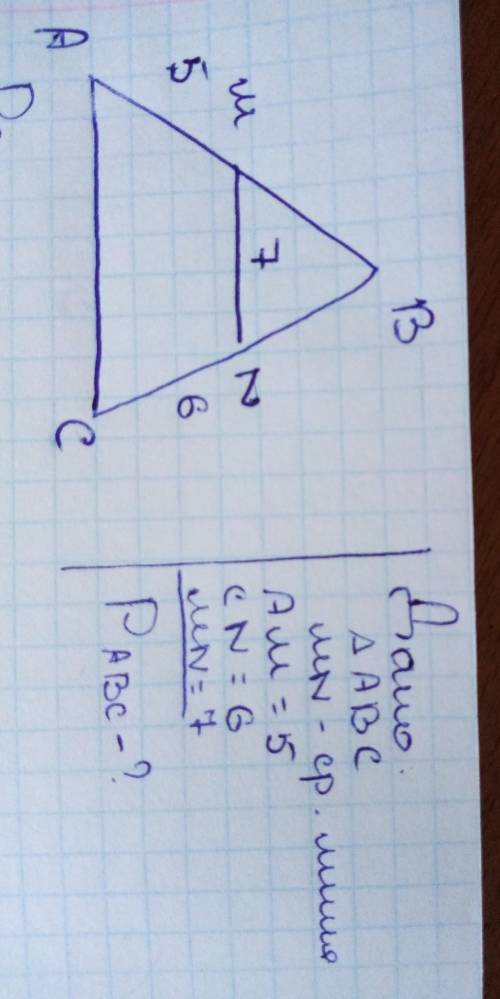 B
м
5
7
N
6
A
C
Дано:
△ABC
MN - ср. линия
AM = 5
CN = 6
MN = 7
P ABC - ?